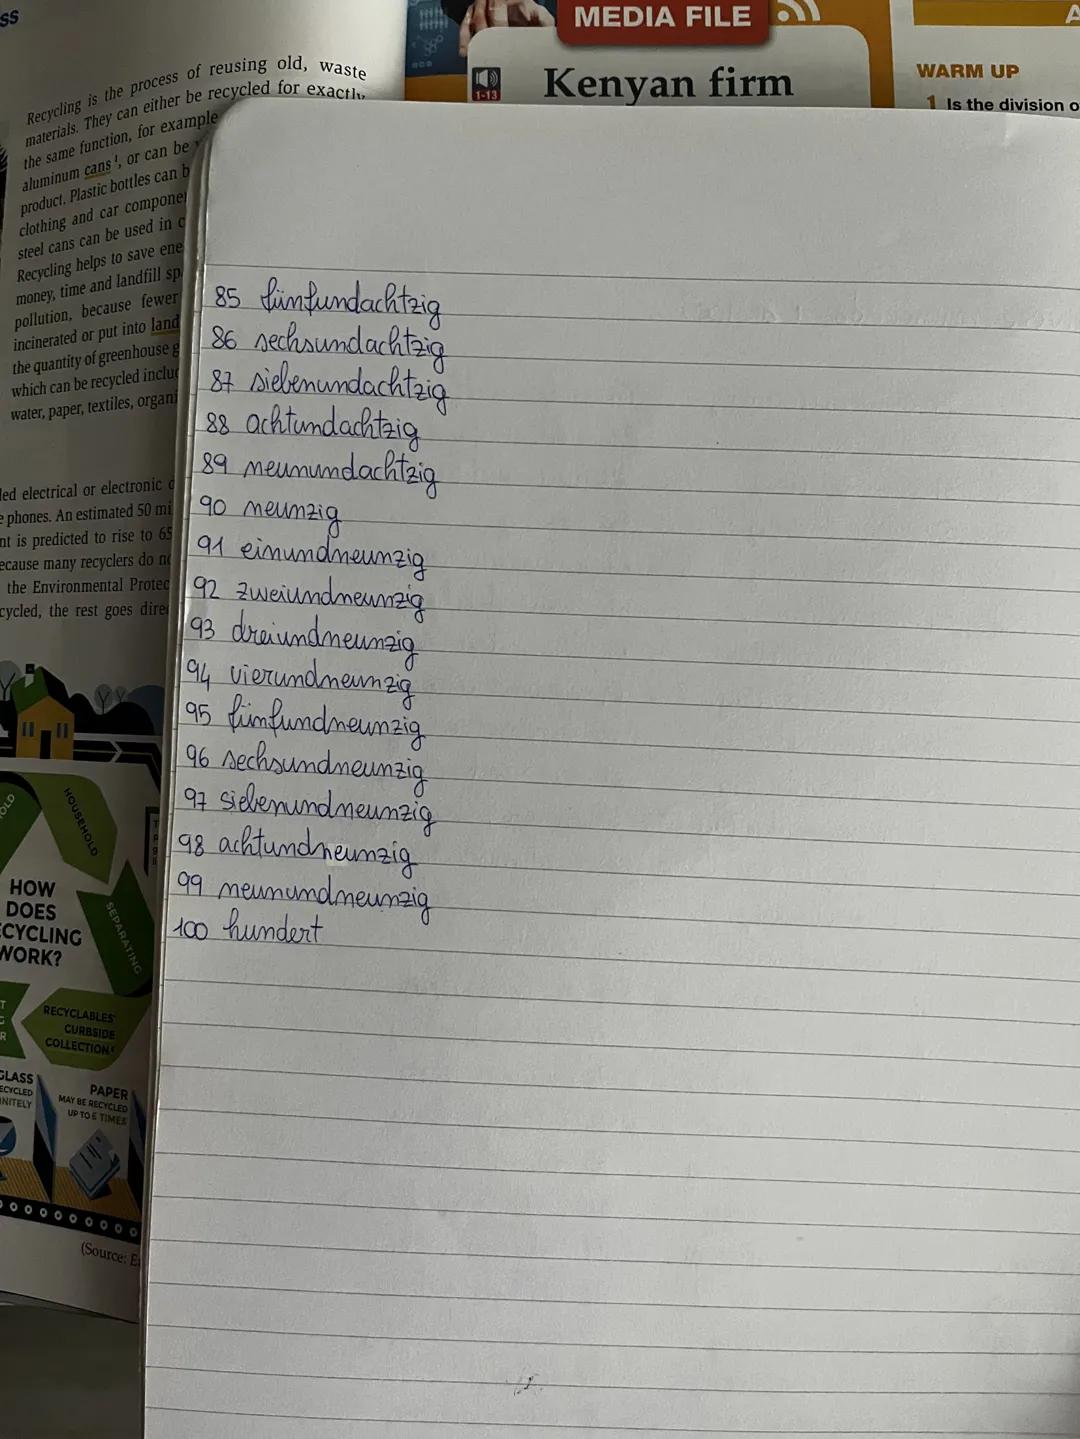 ss
Recycling is the process of reusing old, waste
materials. They can either be recycled for exactly
the same function, for example
aluminum cans¹, or can be
product. Plastic bottles can b
clothing and car compone
steel cans can be used in c
Recycling helps to save ene
money, time and landfill sp
pollution, because fewer
incinerated or put into land
the quantity of greenhouse g
which can be recycled includ
water, paper, textiles, organi
led electrical or electronic d
e phones. An estimated 50 mi
nt is predicted to rise to 65
ecause many recyclers do no
the Environmental Protec
cycled, the rest goes dire
HOUSEHOLD
SEPARATING
HOW
DOES
ECYCLING
WORK?
RECYCLABLES
CURBSIDE
COLLECTION
GLASS
ECYCLED
NITELY
PAPER
MAY BE RECYCLED
UP TO 6 TIMES
(Source: E
MEDIA FILE
1-13
Kenyan firm
A
WARM UP
1 Is the division o
85 fünfundachtzig
86 sechsundachtzig
87 siebenundachtzig
88 achtundachtzig
89 neunundachtzig
90 neunzig
91 einundneunzig
92 zweiundneunzig
93 dreiundneunzig
94 vierundneunzig
95 fünfundneunzig
96 sechsundneunzig
97 siebenundneunzig
98 achtundneunzig
99 neunundneunzig
100 hundert